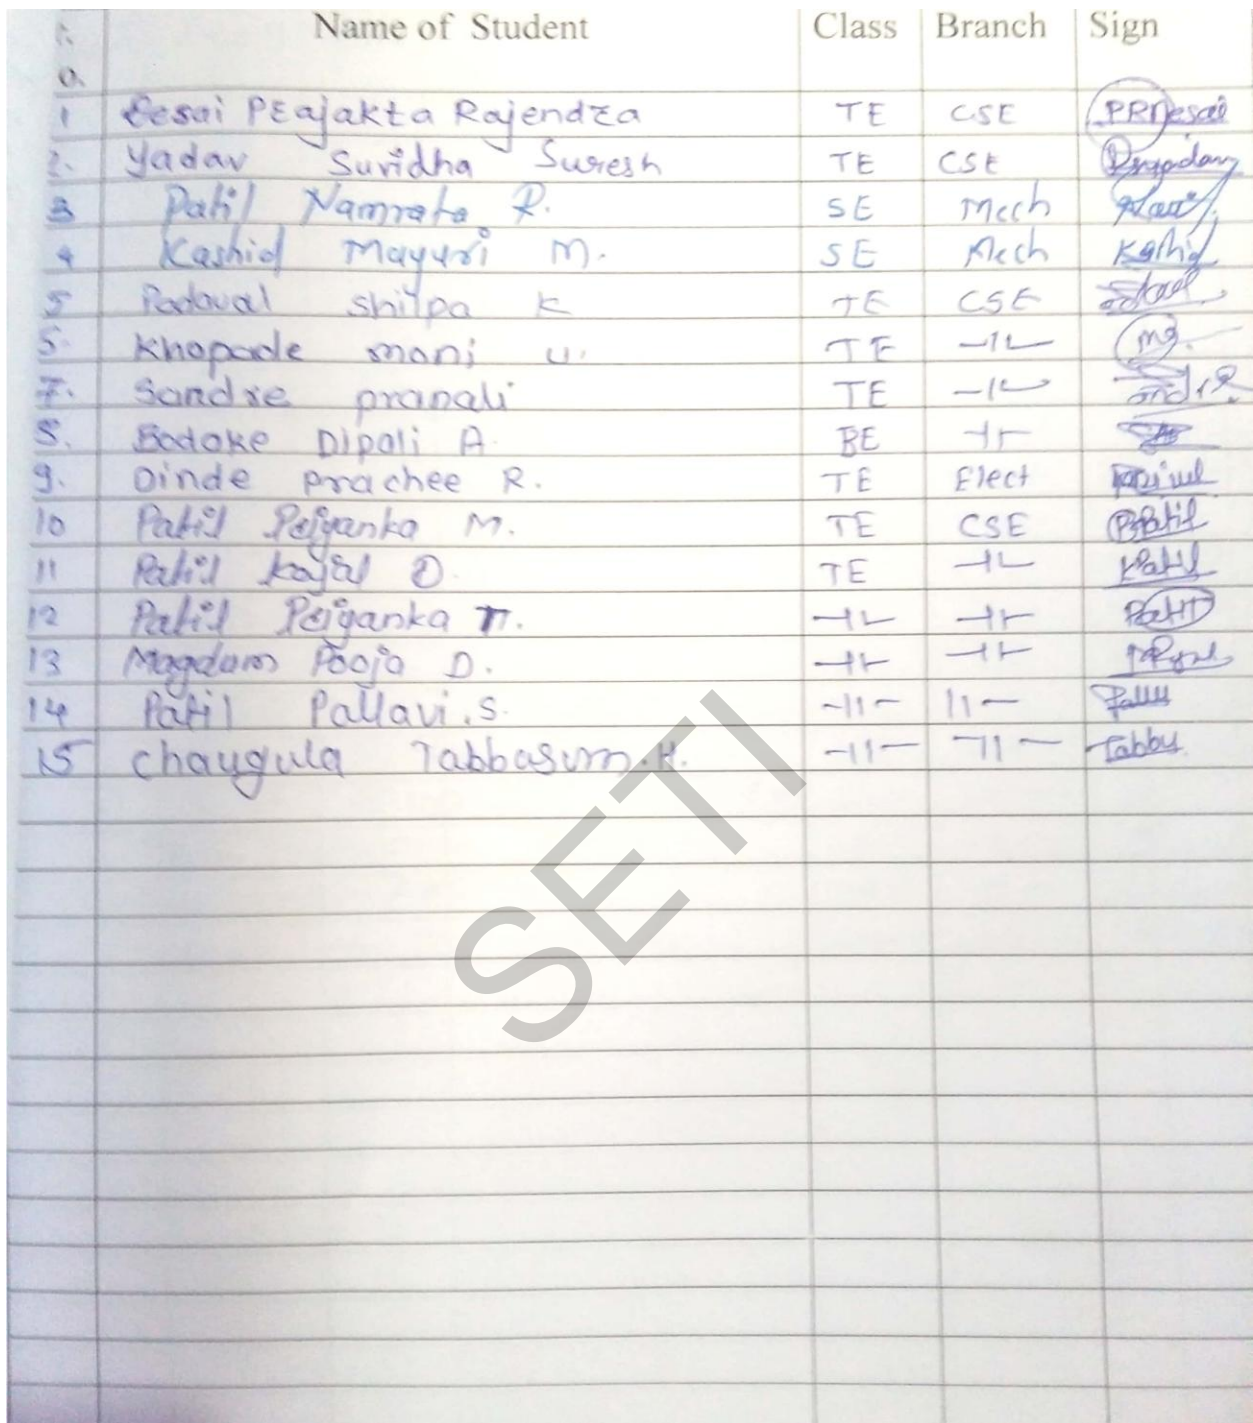 Name of Student Class Branch Sign
o.
1 Desai Prajakta Rajendra TE CSE PRDesai
2. Yadav Suvidha Suresh TE CSE
3 Patil Namrata R. SE Mech
4 Kashid Mayuri M. SE Mech Kashid
5 Padaval Shilpa K TE CSE
Khopade mani u. TE -11- mg.
7. Sandre pranali TE -11-
8. Bodake Dipali A. BE -11-
9. Dinde prachee R. TE Elect
10 Patil Priyanka M. TE CSE PPatil
11 Patil Kajal D. TE -11- KPatil
12 Patil Priyanka T. -11- -11- Patil
13 Magdam Pooja D. -11- -11-
14 Patil Pallavi.S. -11- 11-
15 Chaugula Tabbasum.H. -11- -11- Tabbu
SETI